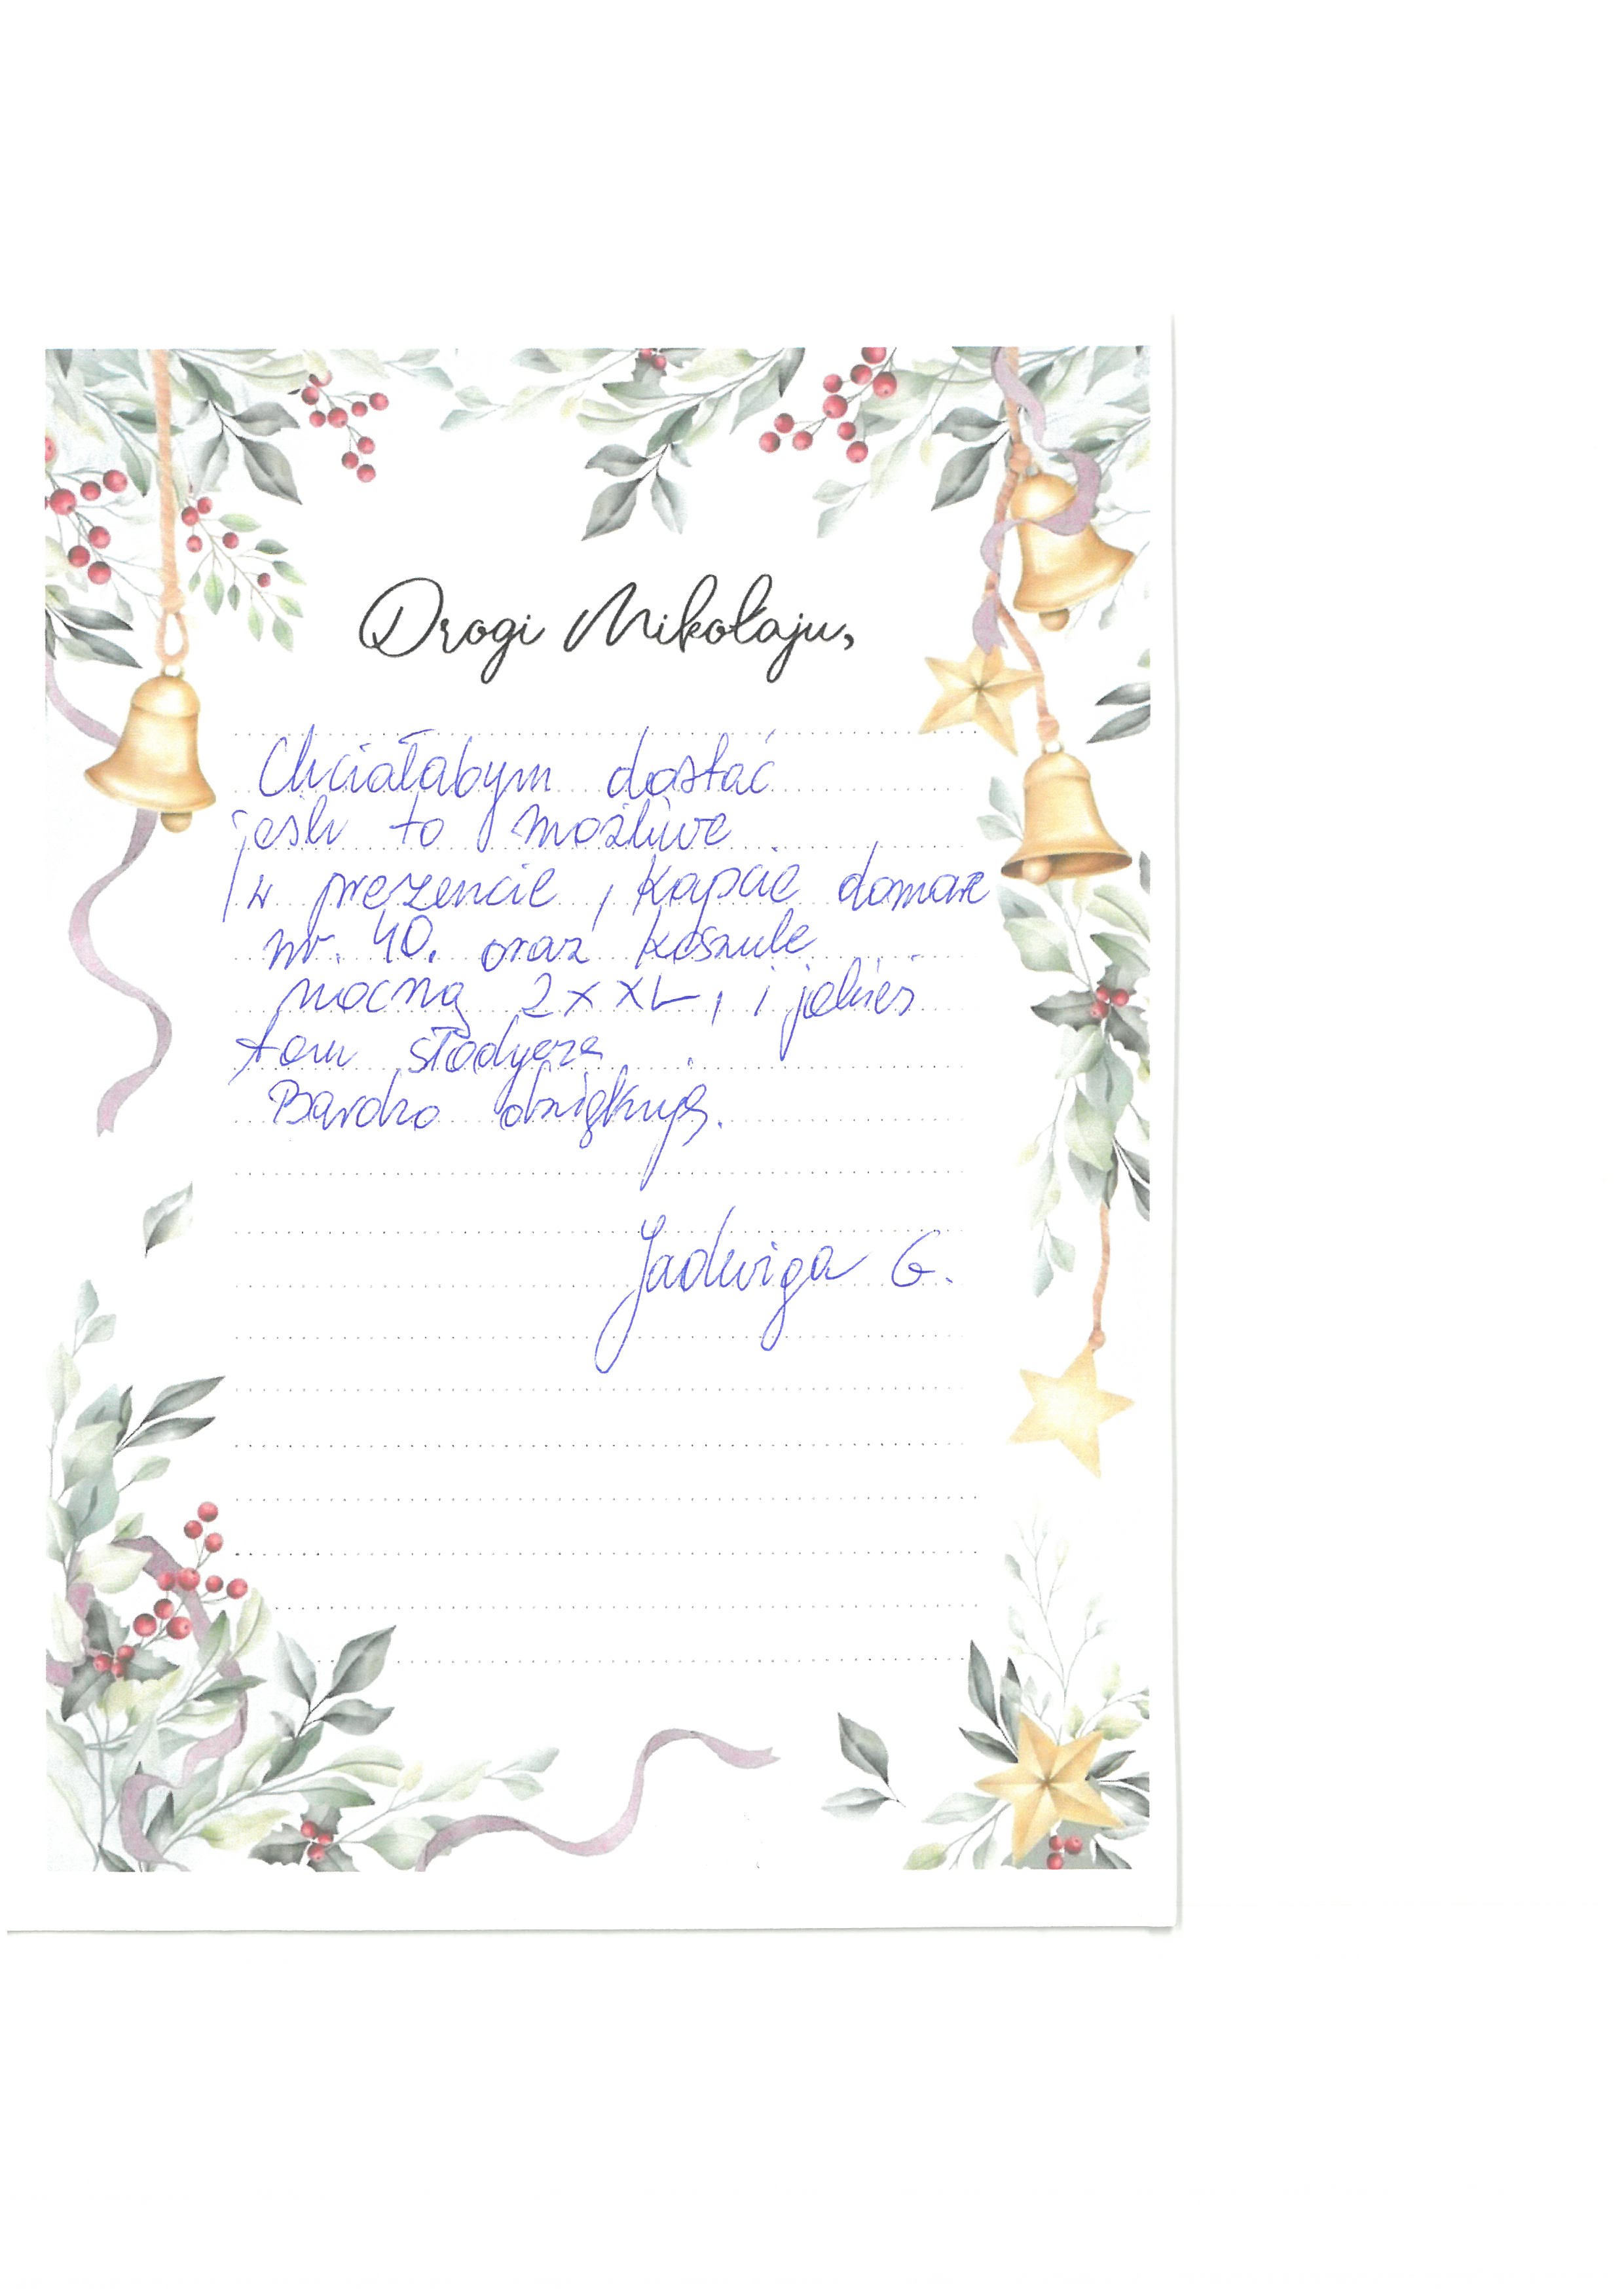 Drogi Mikołaju,
Chciałabym dostać
jeśli to możliwe
w prezencie, kapcie domowe
nr. 40. oraz koszule
nocną 2XXL, i jakieś
słodycze.
Bardzo dziękuję.
Jadwiga G.